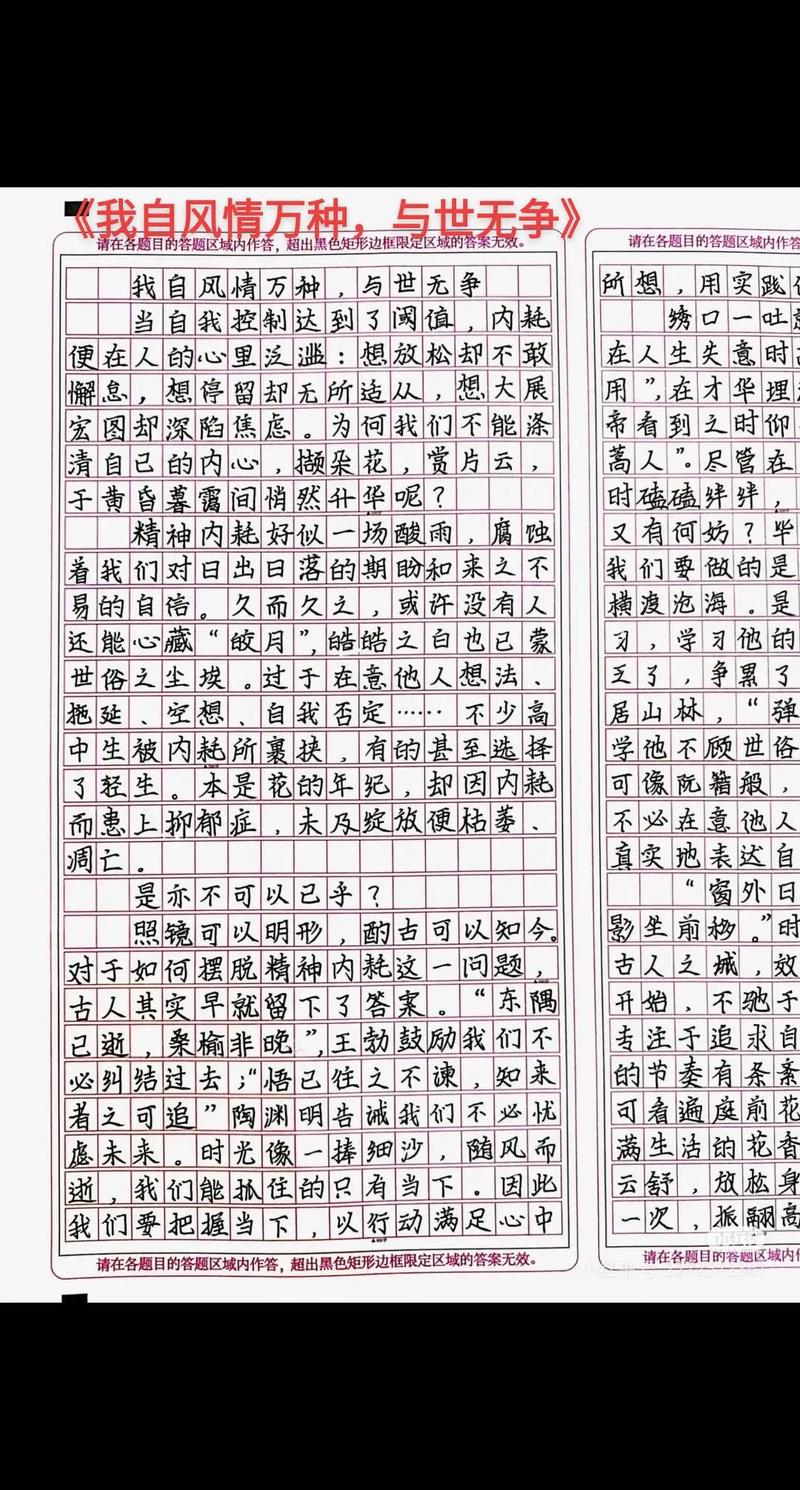 《我自风情万种，与世无争》
请在各题目的答题区域内作答，超出黑色矩形边框限定区域的答案无效。
我自风情万种，与世无争
当自我控制达到了阈值，内耗
便在人的心里泛滥：想放松却不敢
懈怠，想停留却无所适从，想大展
宏图却深陷焦虑。为何我们不能涤
清自己的内心，撷朵花，赏片云，
于黄昏暮霭间悄然升华呢？
精神内耗好似一场酸雨，腐蚀
着我们对日出日落的期盼和来之不
易的自信。久而久之，或许没有人
还能心藏“皎月”，皓皓之白也已蒙
世俗之尘埃。过于在意他人想法、
拖延、空想、自我否定……不少高
中生被内耗所裹挟，有的甚至选择
了轻生。本是花的年纪，却因内耗
而患上抑郁症，未及绽放便枯萎、
凋亡。
是亦不可以已乎？
照镜可以明形，酌古可以知今。
对于如何摆脱精神内耗这一问题，
古人其实早就留下了答案。“东隅
已逝，桑榆非晚”，王勃鼓励我们不
必纠结过去；“悟已往之不谏，知来
者之可追”陶渊明告诫我们不必忧
虑未来。时光像一捧细沙，随风而
逝，我们能抓住的只有当下。因此
我们要把握当下，以行动满足心中
请在各题目的答题区域内作答，超出黑色矩形边框限定区域的答案无效。
请在各题目的答题区域内作答
所想，用实践
绣口一吐
在人生失意时
用”，在才华埋
帝看到之时仰
蒿人”。尽管在
时磕磕绊绊，
又有何妨？毕
我们要做的是
横渡沧海。是
习，学习他的
乏了，争累了
居山林，“弹
学他不顾世俗
可像阮籍般，
不必在意他人
真实地表达自
“窗外日
影坐前移。”时
古人之城，效
开始，不驰于
专注于追求自
的节奏有条紊
可看遍庭前花
满生活的花香
云舒，放松身
一次，振翮高
请在各题目的答题区域内作